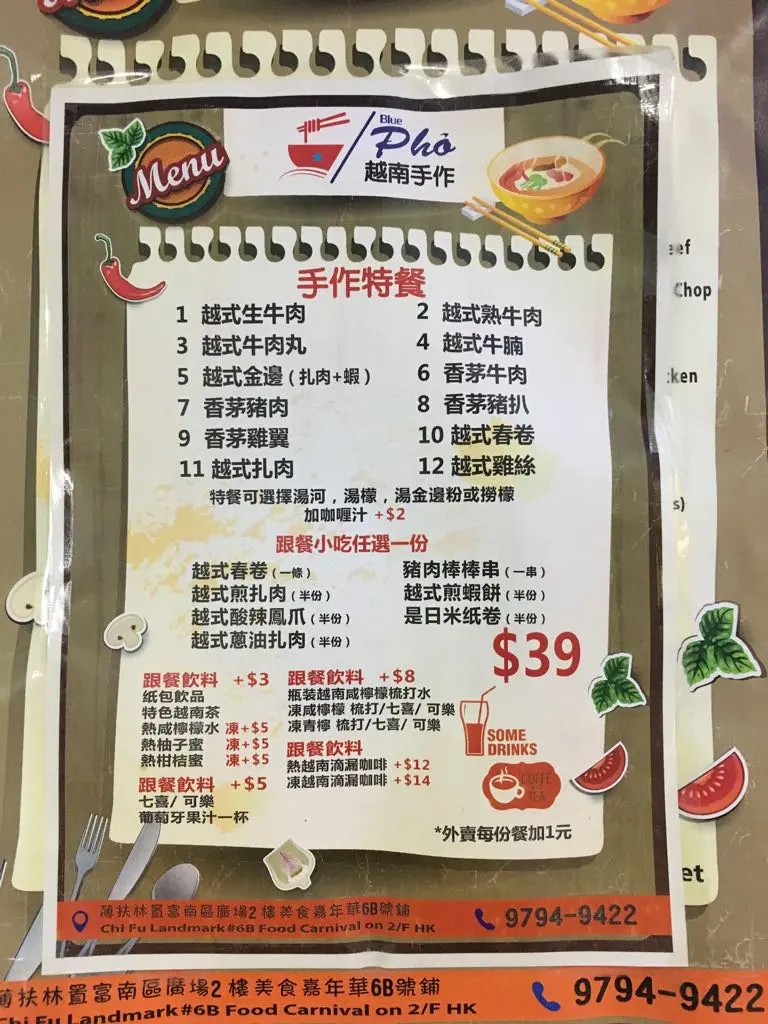 Menu
Blue
Phở
越南手作
手作特餐
1 越式生牛肉
2 越式熟牛肉
3 越式牛肉丸
4 越式牛腩
5 越式金邊 (扎肉+蝦)
6 香茅牛肉
7 香茅豬肉
8 香茅豬扒
9 香茅雞翼
10 越式春卷
11 越式扎肉
12 越式雞絲
特餐可選擇湯河,湯檬,湯金邊粉或撈檬
加咖喱汁 +$2
跟餐小吃任選一份
越式春卷 (一條)
豬肉棒棒串 (一串)
越式煎扎肉 (半份)
越式煎蝦餅 (半份)
越式酸辣鳳爪 (半份)
是日米纸卷 (半份)
越式蔥油扎肉 (半份)
$39
跟餐飲料 +$3
纸包飲品
特色越南茶
熱咸檸檬水 凍+$5
熱柚子蜜 凍+$5
熱柑桔蜜 凍+$5
跟餐飲料 +$5
七喜/ 可樂
葡萄牙果汁一杯
跟餐飲料 +$8
瓶装越南咸檸檬梳打水
凍咸檸檬 梳打/七喜/ 可樂
凍青檸 梳打/七喜/ 可樂
跟餐飲料
熱越南滴漏咖啡 +$12
凍越南滴漏咖啡 +$14
SOME
DRINKS
COFFE
TEA
*外賣每份餐加1元
薄扶林置富南區廣場2樓美食嘉年華6B號鋪
Chi Fu Landmark#6B Food Carnival on 2/F HK
9794-9422
eef
Chop
ken
s)
et
薄扶林置富南區廣場2樓美食嘉年華6B號鋪
Chi Fu Landmark#6B Food Carnival on 2/F HK
9794-9422